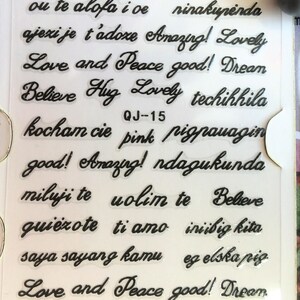 ou te alofa i oe ninakupenda
ajezi je t'adoze Amazing! Lovely
Love and Peace good! Dream
Believe Hug Lovely techihhila
QJ-15
kocham cie pink pigpauagin
good! Amazing! ndagukunda
miluji te uolim te Believe
guiezote ti amo iniibig kita
saya sayang kamu eg elska pig
Love and Peace good! Dream